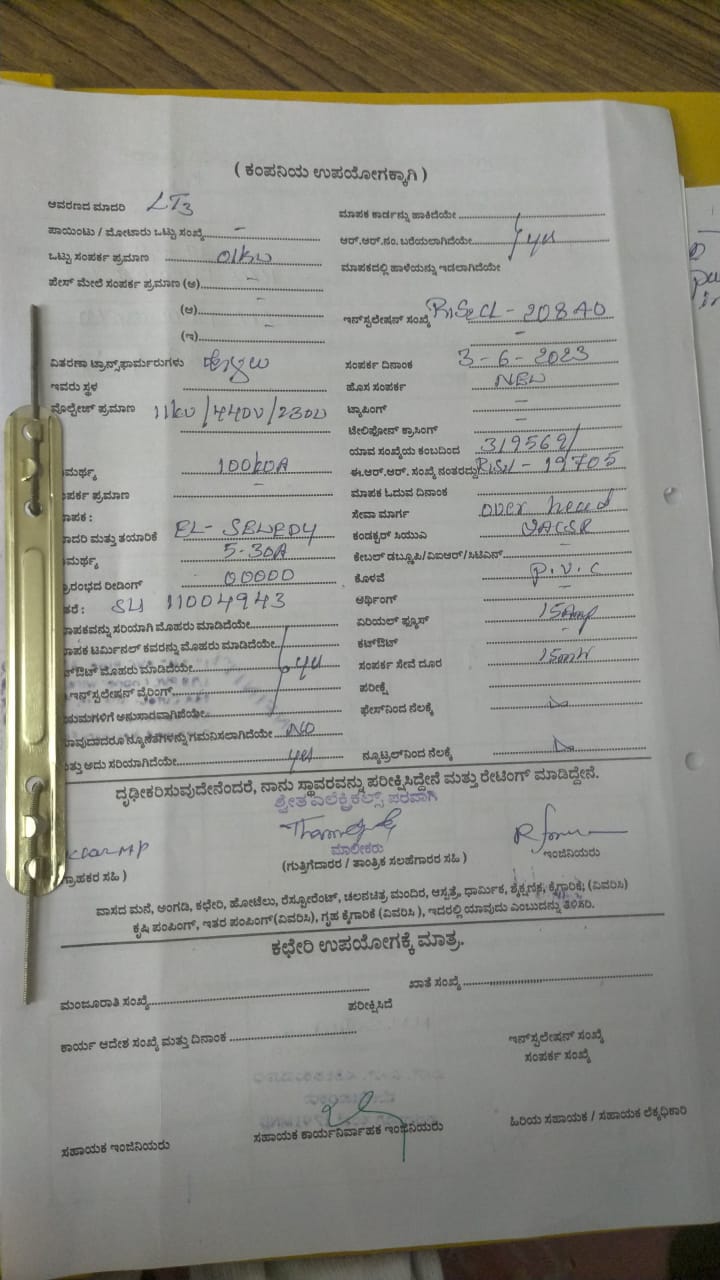 ( ಕಂಪನಿಯ ಉಪಯೋಗಕ್ಕಾಗಿ )
ಆವರಣದ ಮಾದರಿ LT3
ಮಾಪಕ ಕಾರ್ಡನ್ನು ಹಾಕಿದೆಯೇ
ಪಾಯಿಂಟು / ಮೋಟಾರು ಒಟ್ಟು ಸಂಖ್ಯೆ -
ಆರ್.ಆರ್.ನಂ. ಬರೆಯಲಾಗಿದೆಯೇ yes
ಒಟ್ಟು ಸಂಪರ್ಕ ಪ್ರಮಾಣ 01kw
ಮಾಪಕದಲ್ಲಿ ಹಾಳೆಯನ್ನು ಇಡಲಾಗಿದೆಯೇ
ಪೇಸ್ ಮೇಲೆ ಸಂಪರ್ಕ ಪ್ರಮಾಣ (ಅ) -
(ಆ) -
ಇನ್‌ಸ್ಟಲೇಷನ್ ಸಂಖ್ಯೆ - 20840
(ಇ) -
ವಿತರಣಾ ಟ್ರಾನ್ಸ್‌ಫಾರ್ಮರುಗಳು
ಸಂಪರ್ಕ ದಿನಾಂಕ 3-6-2023
ಇವರು ಸ್ಥಳ
ಹೊಸ ಸಂಪರ್ಕ NEW
ವೋಲ್ಟೇಜ್ ಪ್ರಮಾಣ 11kv/440v/230v
ಟ್ಯಾಪಿಂಗ್ -
ಟೆಲಿಫೋನ್ ಕ್ರಾಸಿಂಗ್ -
ಯಾವ ಸಂಖ್ಯೆಯ ಕಂಬದಿಂದ 319569/
ಮರ್ಥ್ಯ 100kVA
ಈ.ಆರ್.ಆರ್. ಸಂಖ್ಯೆ ನಂತರದ್ದು - 19705
ಪರ್ಕ ಪ್ರಮಾಣ -
ಮಾಪಕ ಓದುವ ದಿನಾಂಕ
ಪಕ :
ಸೇವಾ ಮಾರ್ಗ over head
ಾದರಿ ಮತ್ತು ತಯಾರಿಕೆ EL-SEWEDY
ಕಂಡಕ್ಟರ್ ಸಿಯುಎ
ಮರ್ಥ್ಯ 5-30A
ಕೇಬಲ್ ಡಬ್ಲ್ಯೂಪಿ/ವಿಐಆರ್/ಸಿಟಿಎಸ್ -
ಾರಂಭದ ರೀಡಿಂಗ್ 00000
ಕೊಳವೆ P.V.C
ತರೆ : SLI 11004943
ಅರ್ಥಿಂಗ್
ಾಪಕವನ್ನು ಸರಿಯಾಗಿ ಮೊಹರು ಮಾಡಿದೆಯೇ
ಏರಿಯಲ್ ಫ್ಯೂಸ್ 15Amp
ಾಪಕ ಟರ್ಮಿನಲ್ ಕವರನ್ನು ಮೊಹರು ಮಾಡಿದೆಯೇ
ಕಟ್‌ಔಟ್ -
್‌ಔಟ್ ಮೊಹರು ಮಾಡಿದೆಯೇ yes
ಸಂಪರ್ಕ ಸೇವೆ ದೂರ
ಇನ್‌ಸ್ಟಲೇಷನ್ ವೈರಿಂಗ್
ಪರೀಕ್ಷೆ
ಯಮಗಳಿಗೆ ಅನುಸಾರವಾಗಿದೆಯೇ
ಫೇಸ್‌ನಿಂದ ನೆಲಕ್ಕೆ
ಾವುದಾದರೂ ನ್ಯೂನತೆಗಳನ್ನು ಗಮನಿಸಲಾಗಿದೆಯೇ NO
ತ್ತು ಅದು ಸರಿಯಾಗಿದೆಯೇ yes
ನ್ಯೂಟ್ರಲ್‌ನಿಂದ ನೆಲಕ್ಕೆ
ದೃಢೀಕರಿಸುವುದೇನೆಂದರೆ, ನಾನು ಸ್ಥಾವರವನ್ನು ಪರೀಕ್ಷಿಸಿದ್ದೇನೆ ಮತ್ತು ರೇಟಿಂಗ್ ಮಾಡಿದ್ದೇನೆ.
ಶ್ವೇತ ಎಲೆಕ್ಟ್ರಿಕಲ್ಸ್ ಪರವಾಗಿ
ಮಾಲೀಕರು
್ರಾಹಕರ ಸಹಿ )
(ಗುತ್ತಿಗೆದಾರರ / ತಾಂತ್ರಿಕ ಸಲಹೆಗಾರರ ಸಹಿ )
ಇಂಜಿನಿಯರು
ವಾಸದ ಮನೆ, ಅಂಗಡಿ, ಕಛೇರಿ, ಹೋಟೆಲು, ರೆಸ್ಟೋರೆಂಟ್, ಚಲನಚಿತ್ರ ಮಂದಿರ, ಆಸ್ಪತ್ರೆ, ಧಾರ್ಮಿಕ, ಶೈಕ್ಷಣಿಕ, ಕೈಗಾರಿಕೆ; (ವಿವರಿಸಿ)
ಕೃಷಿ ಪಂಪಿಂಗ್, ಇತರ ಪಂಪಿಂಗ್ (ವಿವರಿಸಿ), ಗೃಹ ಕೈಗಾರಿಕೆ (ವಿವರಿಸಿ ), ಇದರಲ್ಲಿ ಯಾವುದು ಎಂಬುದನ್ನು ತಿಳಿಸಿರಿ.
ಕಛೇರಿ ಉಪಯೋಗಕ್ಕೆ ಮಾತ್ರ.
ಮಂಜೂರಾತಿ ಸಂಖ್ಯೆ
ಖಾತೆ ಸಂಖ್ಯೆ
ಪರೀಕ್ಷಿಸಿದೆ
ಕಾರ್ಯ ಆದೇಶ ಸಂಖ್ಯೆ ಮತ್ತು ದಿನಾಂಕ
ಇನ್‌ಸ್ಟಲೇಷನ್ ಸಂಖ್ಯೆ
ಸಂಪರ್ಕ ಸಂಖ್ಯೆ
ಸಹಾಯಕ ಇಂಜಿನಿಯರು
ಸಹಾಯಕ ಕಾರ್ಯನಿರ್ವಾಹಕ ಇಂಜಿನಿಯರು
ಹಿರಿಯ ಸಹಾಯಕ / ಸಹಾಯಕ ಲೆಕ್ಕಾಧಿಕಾರಿ